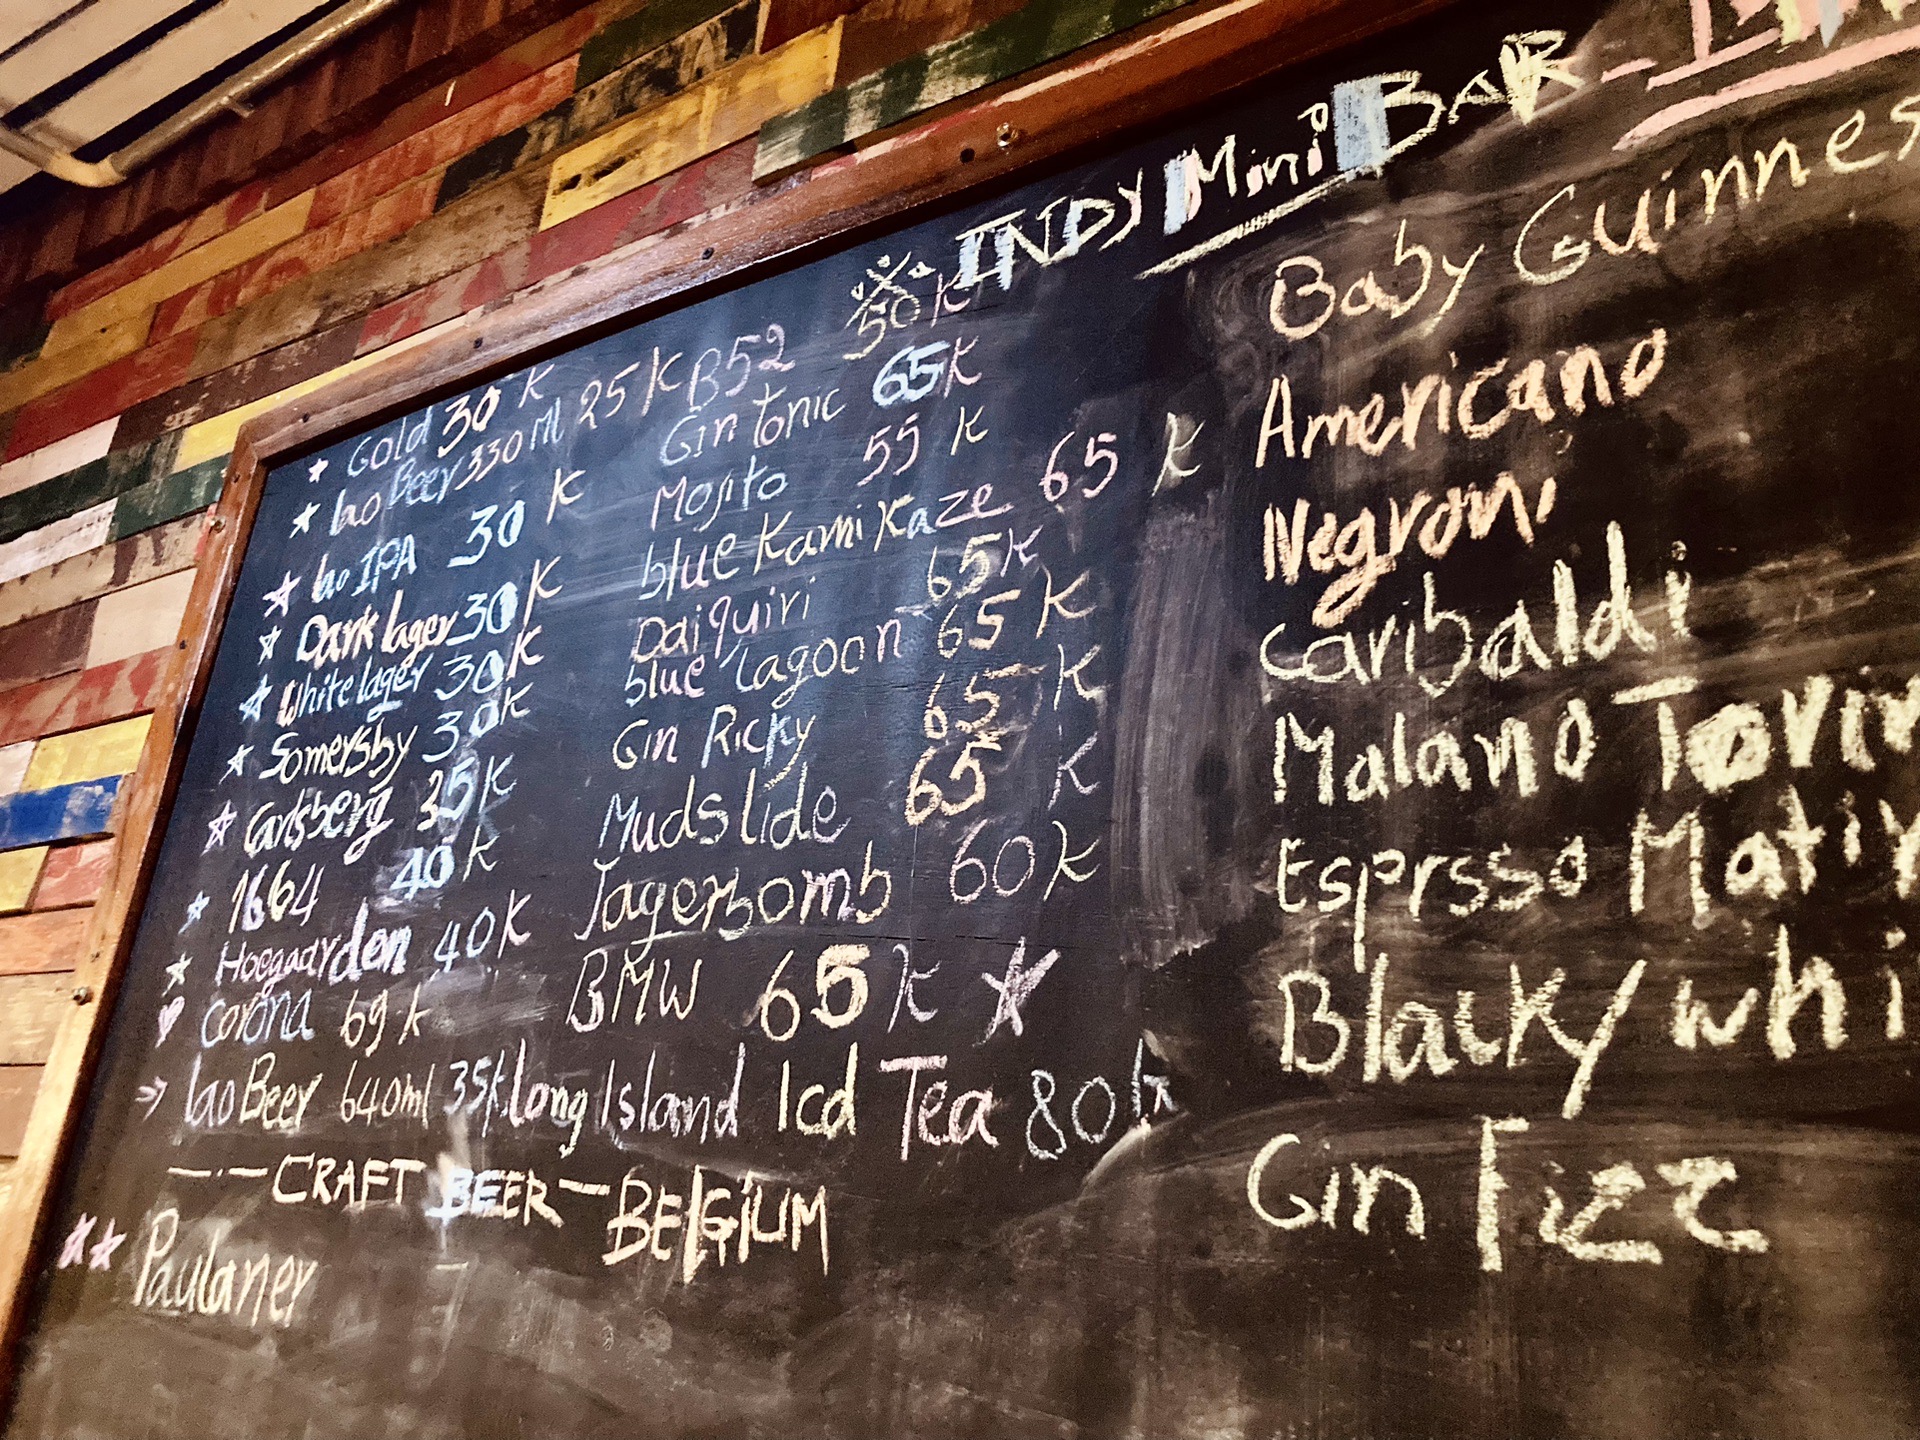 INDY Mini BAR
Gold 30 K
lao Beer 330 Ml 25 K
lao IPA 30 K
Dark lager 30 K
White lager 30 K
Somersby 30K
Carlsberg 35K
1664 40 K
Hoegaarden 40K
corona 69 K
lao Beer 640ml 35K
- CRAFT BEER - BElGiUM
Paulaner
B52 50 K
Gin tonic 65K
Mojito 55 K
blue Kamikaze 65 K
Daiquiri 65K
blue Lagoon 65 K
Gin Ricky 65 K
Mudslide 65 K
Jagerbomb 60K
BMW 65 K
long Island Icd Tea 80 K
Baby Guinnes
Americano
Negroni
Garibaldi
Malano Torin
Esprsso Matin
Black/whi
Gin Fizz